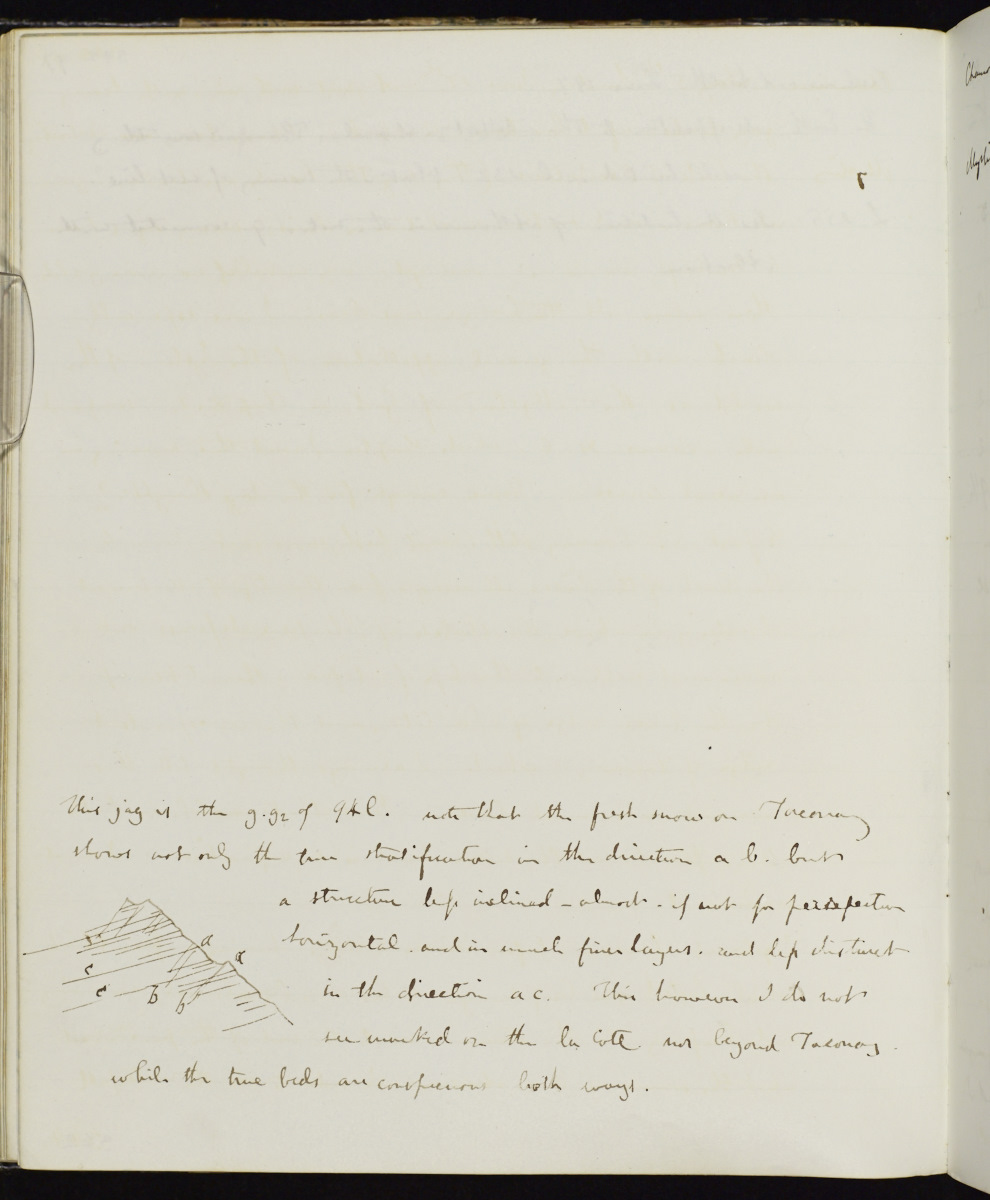 This jag is the g.g2 of 94 l. note that the fresh snow on Taconay
shows not only the true stratification in the direction a b. but
a structure less inclined - almost - if not for perspective
horizontal. and in much finer layers. and less distinct
in the direction a c. This however I do not
see marked on the la Cote nor beyond Taconay.
while the true beds are conspicuous both ways.
a
a
c
c
b
b